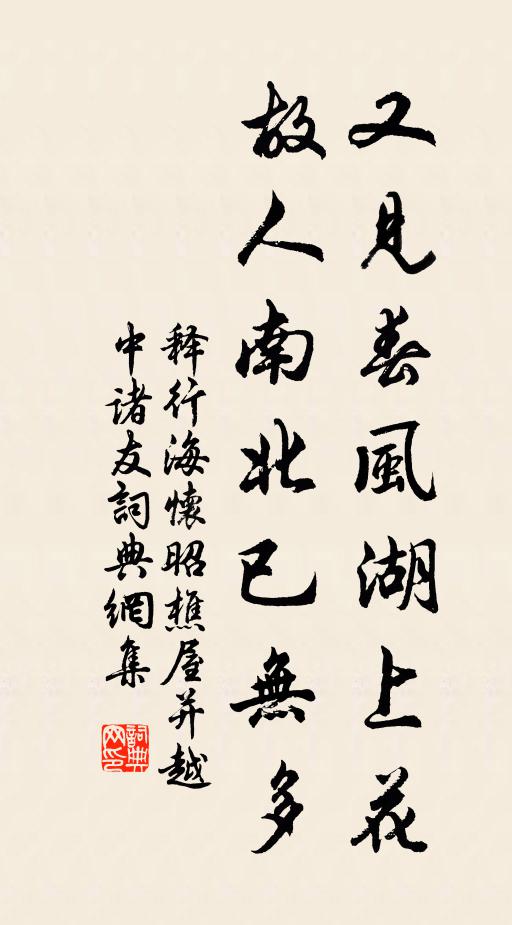 又見春風湖上花
故人南北已無多
释行海懷昭樵屋并越
中诸友詞典網集
詞典
网印